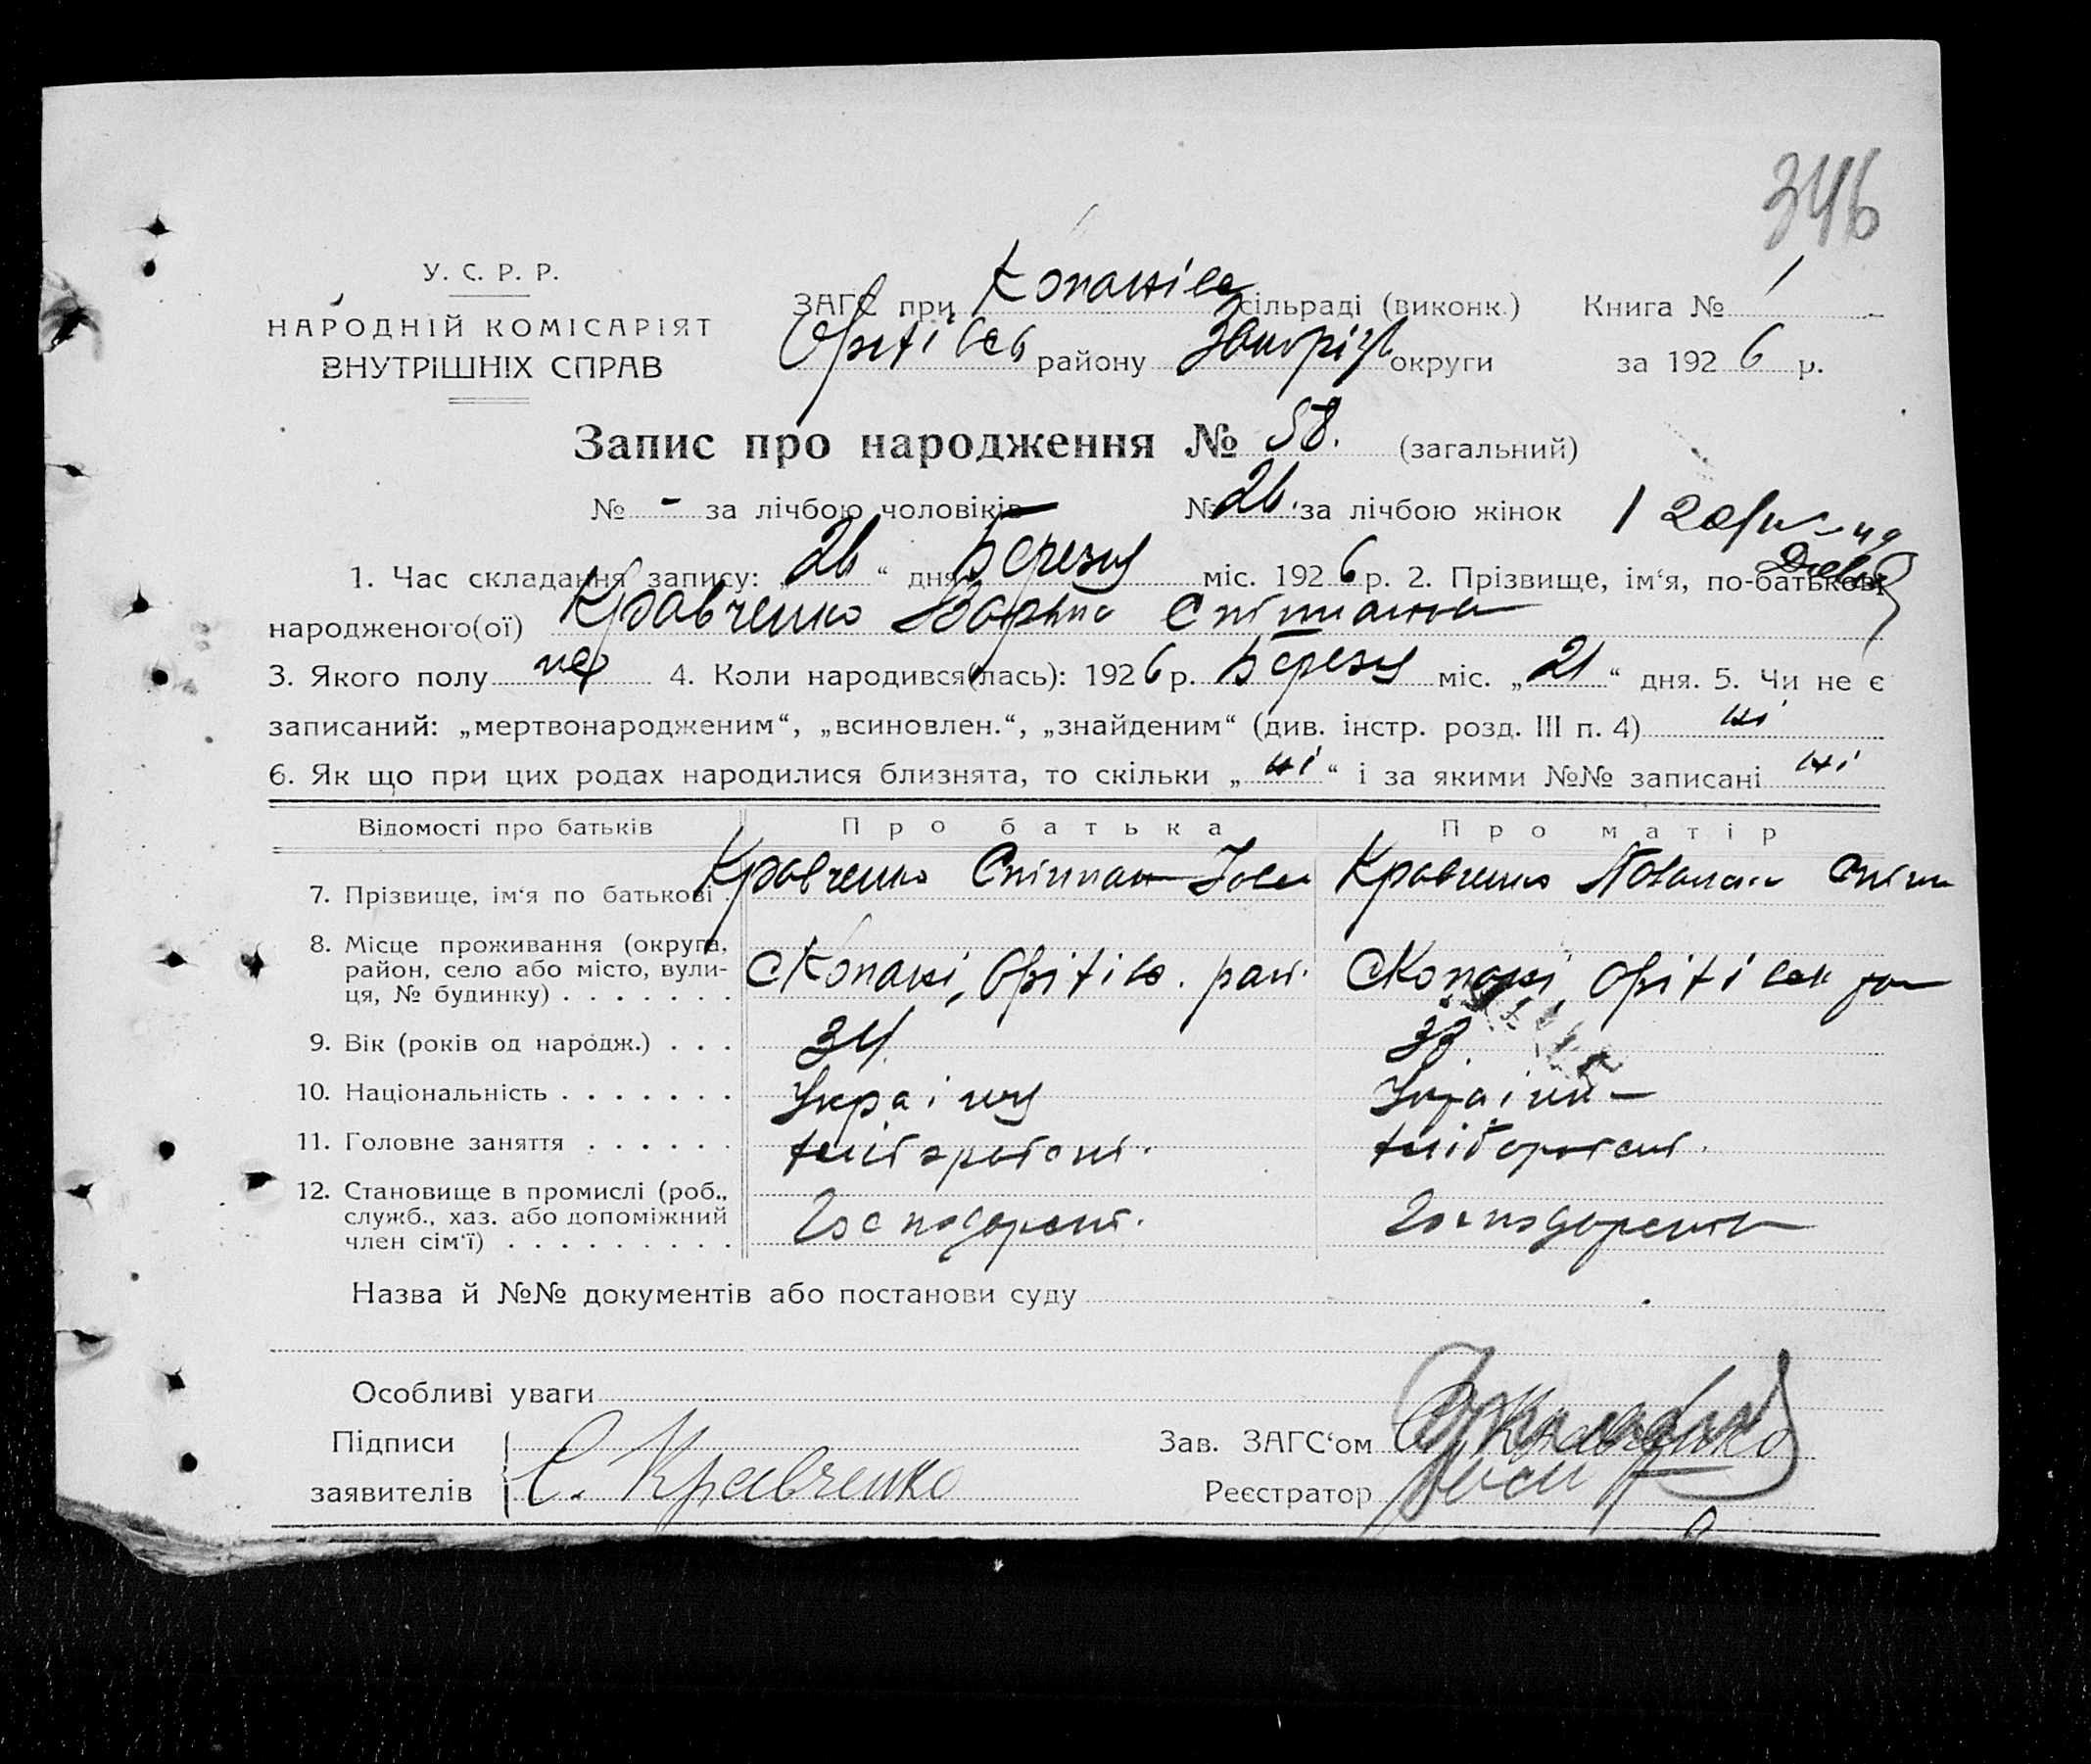 346
У. С. Р. Р.
НАРОДНІЙ КОМІСАРІЯТ
ВНУТРІШНІХ СПРАВ
ЗАГС при Копанів сільраді (виконк.) Книга № 1
Оріхівськ району Запоріз округи за 1926 р.
Запис про народження № 58. (загальний)
№ - за лічбою чоловіків № 26 за лічбою жінок
1. Час складання запису: 26 “ дня Березня міс. 1926 р. 2. Прізвище, ім‘я, по-батькові
народженого(ої) Кравченко Степановна
3. Якого полу жен 4. Коли народився(лась): 1926 р. Березня міс. „ 21 “ дня. 5. Чи не є
записаний: „мертвонародженим“, „всиновлен.“, „знайденим“ (див. інстр. розд. III п. 4) ні
6. Як що при цих родах народилися близнята, то скільки „ ні “ і за якими №№ записані ні
Відомості про батьків Про батька Про матір
7. Прізвище, ім‘я по батькові . Кравченко Кравченко
8. Місце проживання (округа, район, село або місто, вулиця, № будинку) . . . . . . . С Копані, Оріхів. рай. С Копані, Оріхівськ
9. Вік (років од народж.) . . . 34 33
10. Національність . . . . . . . Україн Україн
11. Головне заняття . . . . . . хліборобст. хліборобст.
12. Становище в промислі (роб., служб., хаз. або допоміжний член сім‘ї) . . . . . . . . . Господарст.
Назва й №№ документів або постанови суду
Особливі уваги
Підписи
заявителів С. Кравченко
Зав. ЗАГС‘ом
Реєстратор